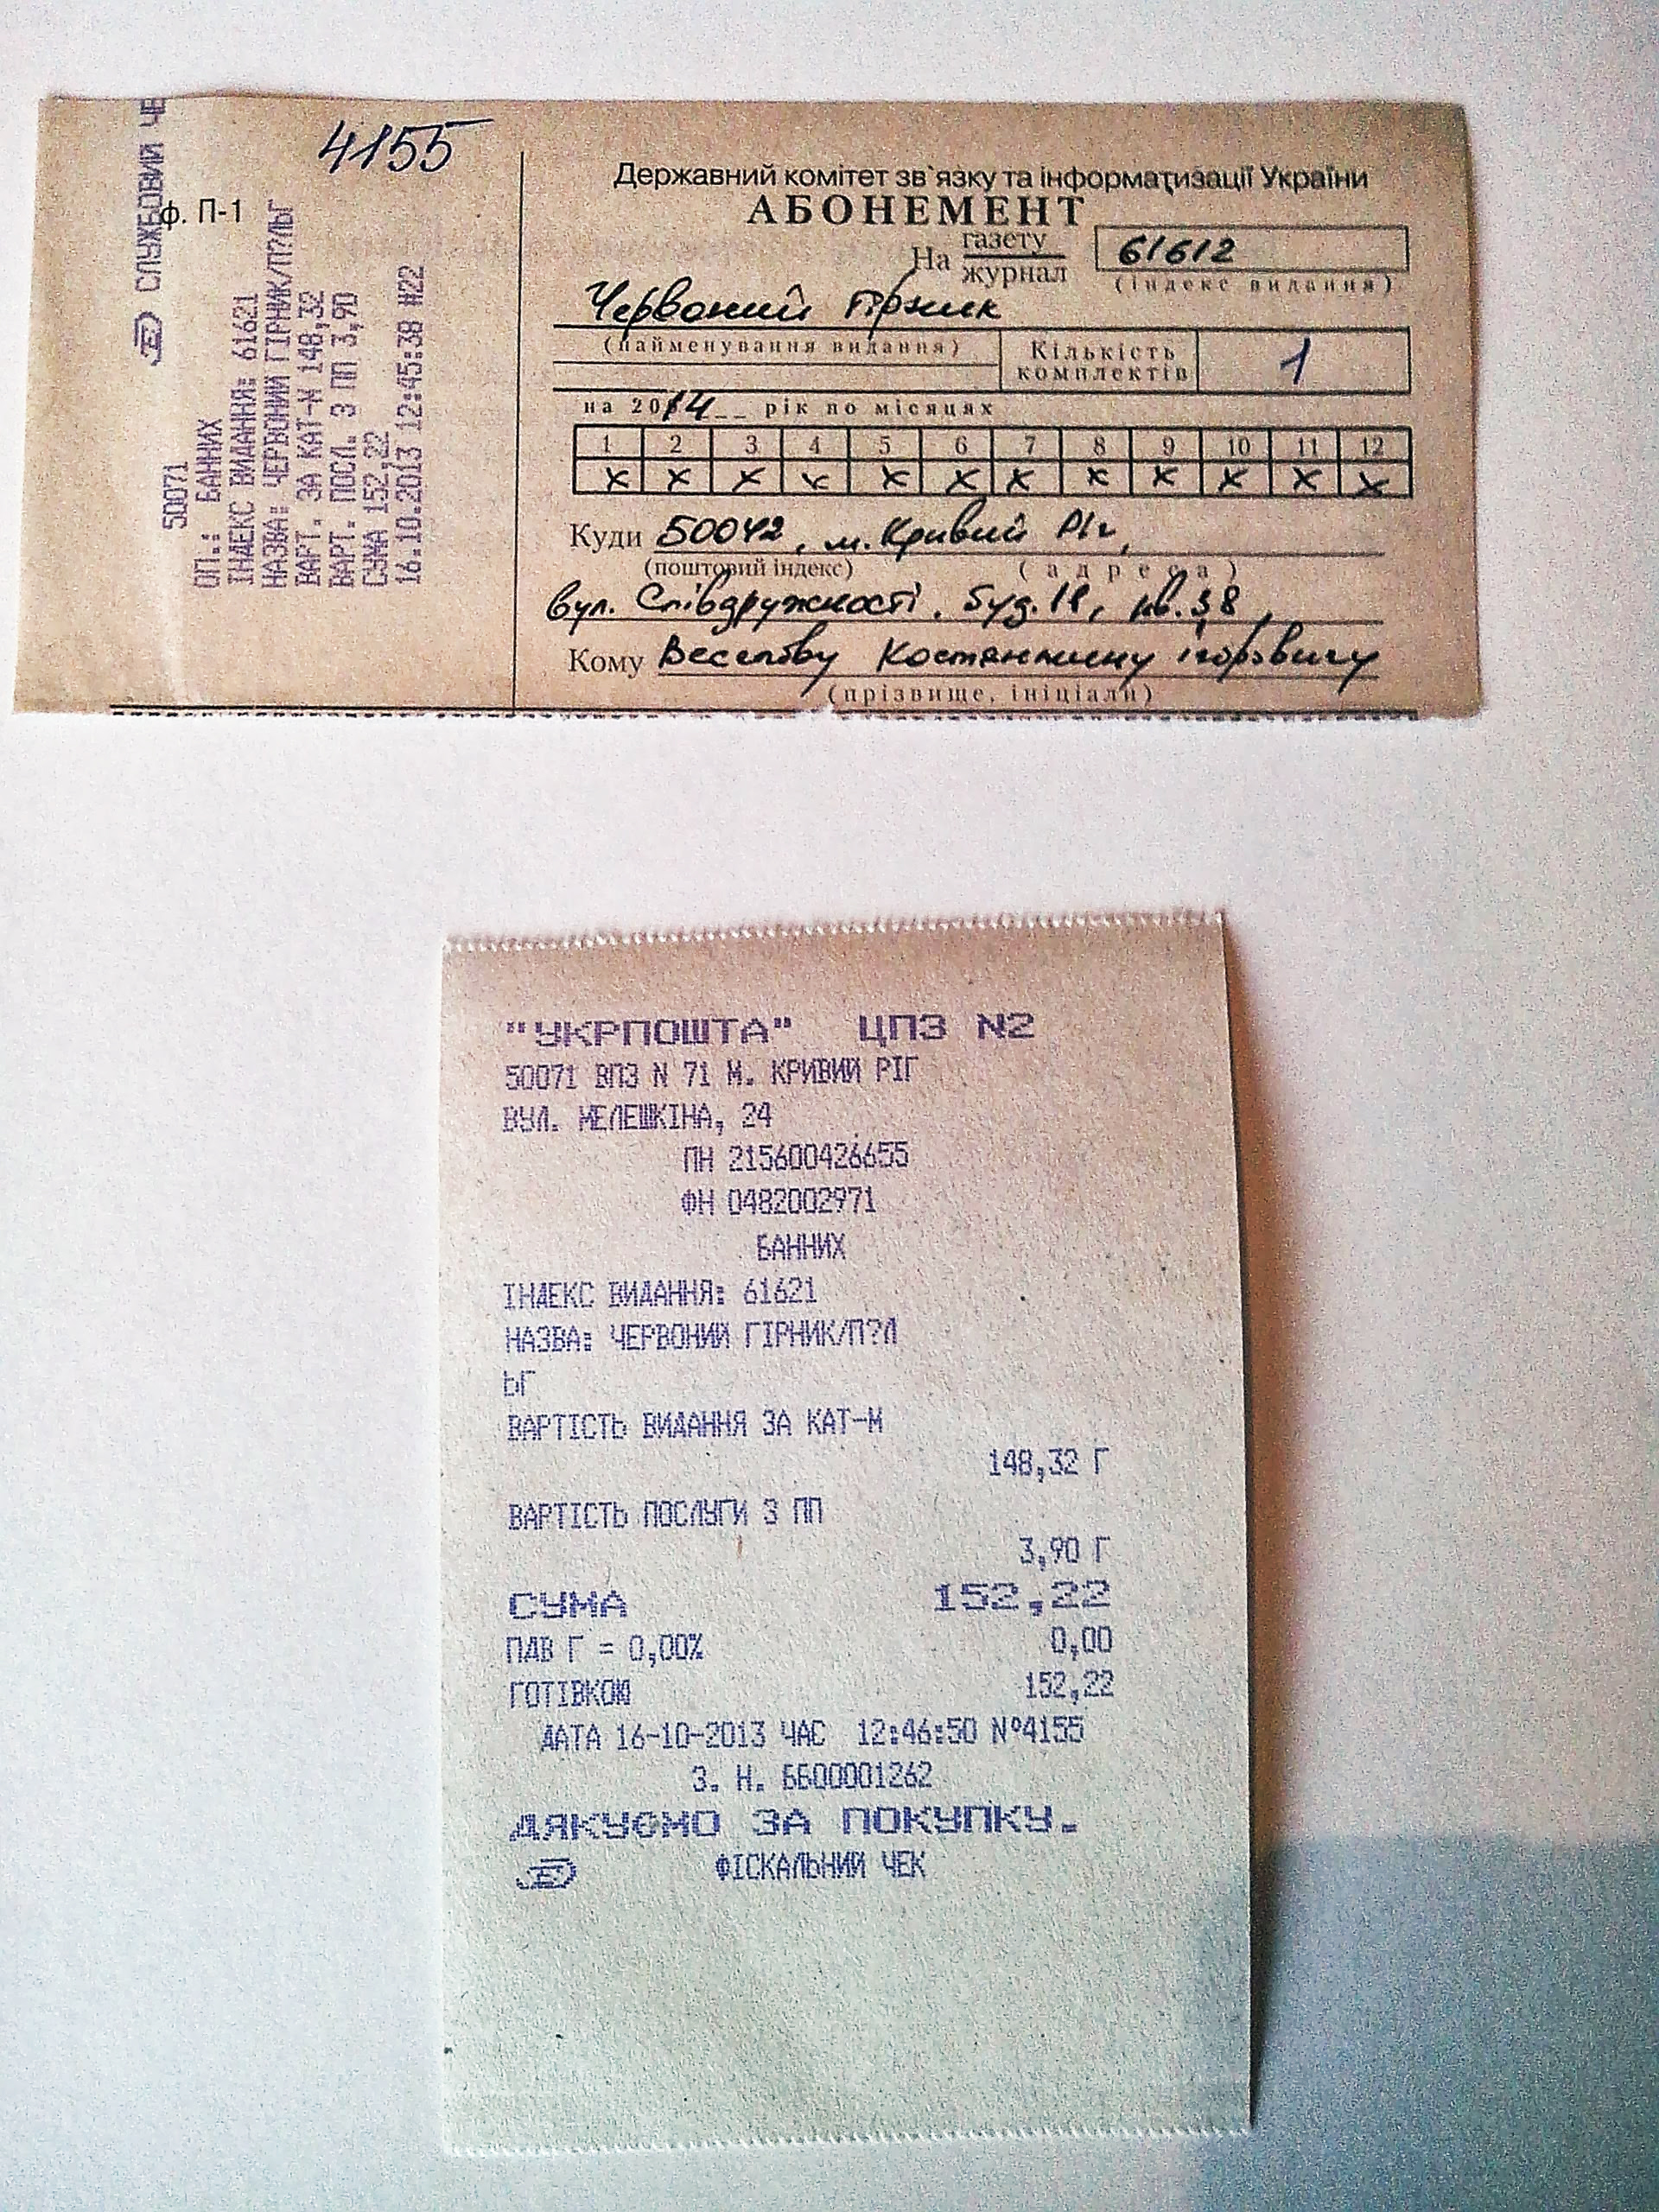 4155
ф. П-1
СЛУЖБОВИЙ ЧЕ
50071
ОП.: БАННИХ
ІНДЕКС ВИДАННЯ: 61621
НАЗВА: ЧЕРВОНИЙ ГІРНИК/П?ЛЬГ
ВАРТ. ЗА КАТ-М 148,32
ВАРТ. ПОСЛ. З ПП 3,90
СУМА 152,22
16.10.2013 12:45:38 #22
Державний комітет зв`язку та інформатизації України
АБОНЕМЕНТ
На газету
журнал
61612
(індекс видання)
Червоний Гірник
(найменування видання)
Кількість
комплектів
1
на 2014__ рік по місяцях
1 2 3 4 5 6 7 8 9 10 11 12
x x x x x x x x x x x x
Куди 50042, м. Кривий Ріг,
(поштовий індекс) (адреса)
вул. Співдружності, буд. кв. 38,
Кому Веселову Костянтину Ігоровичу
(прізвище, ініціали)
"УКРПОШТА" ЦПЗ N2
50071 ВПЗ N 71 М. КРИВИЙ РІГ
ВУЛ. МЕЛЕШКІНА, 24
ПН 215600426655
ФН 0482002971
БАННИХ
ІНДЕКС ВИДАННЯ: 61621
НАЗВА: ЧЕРВОНИЙ ГІРНИК/П?Л
ЬГ
ВАРТІСТЬ ВИДАННЯ ЗА КАТ-М
148,32 Г
ВАРТІСТЬ ПОСЛУГИ З ПП
3,90 Г
СУМА 152,22
ПДВ Г = 0,00% 0,00
ГОТІВКОЮ 152,22
ДАТА 16-10-2013 ЧАС 12:46:50 №4155
З. Н. ББ00001262
ДЯКУЄМО ЗА ПОКУПКУ.
ФІСКАЛЬНИЙ ЧЕК